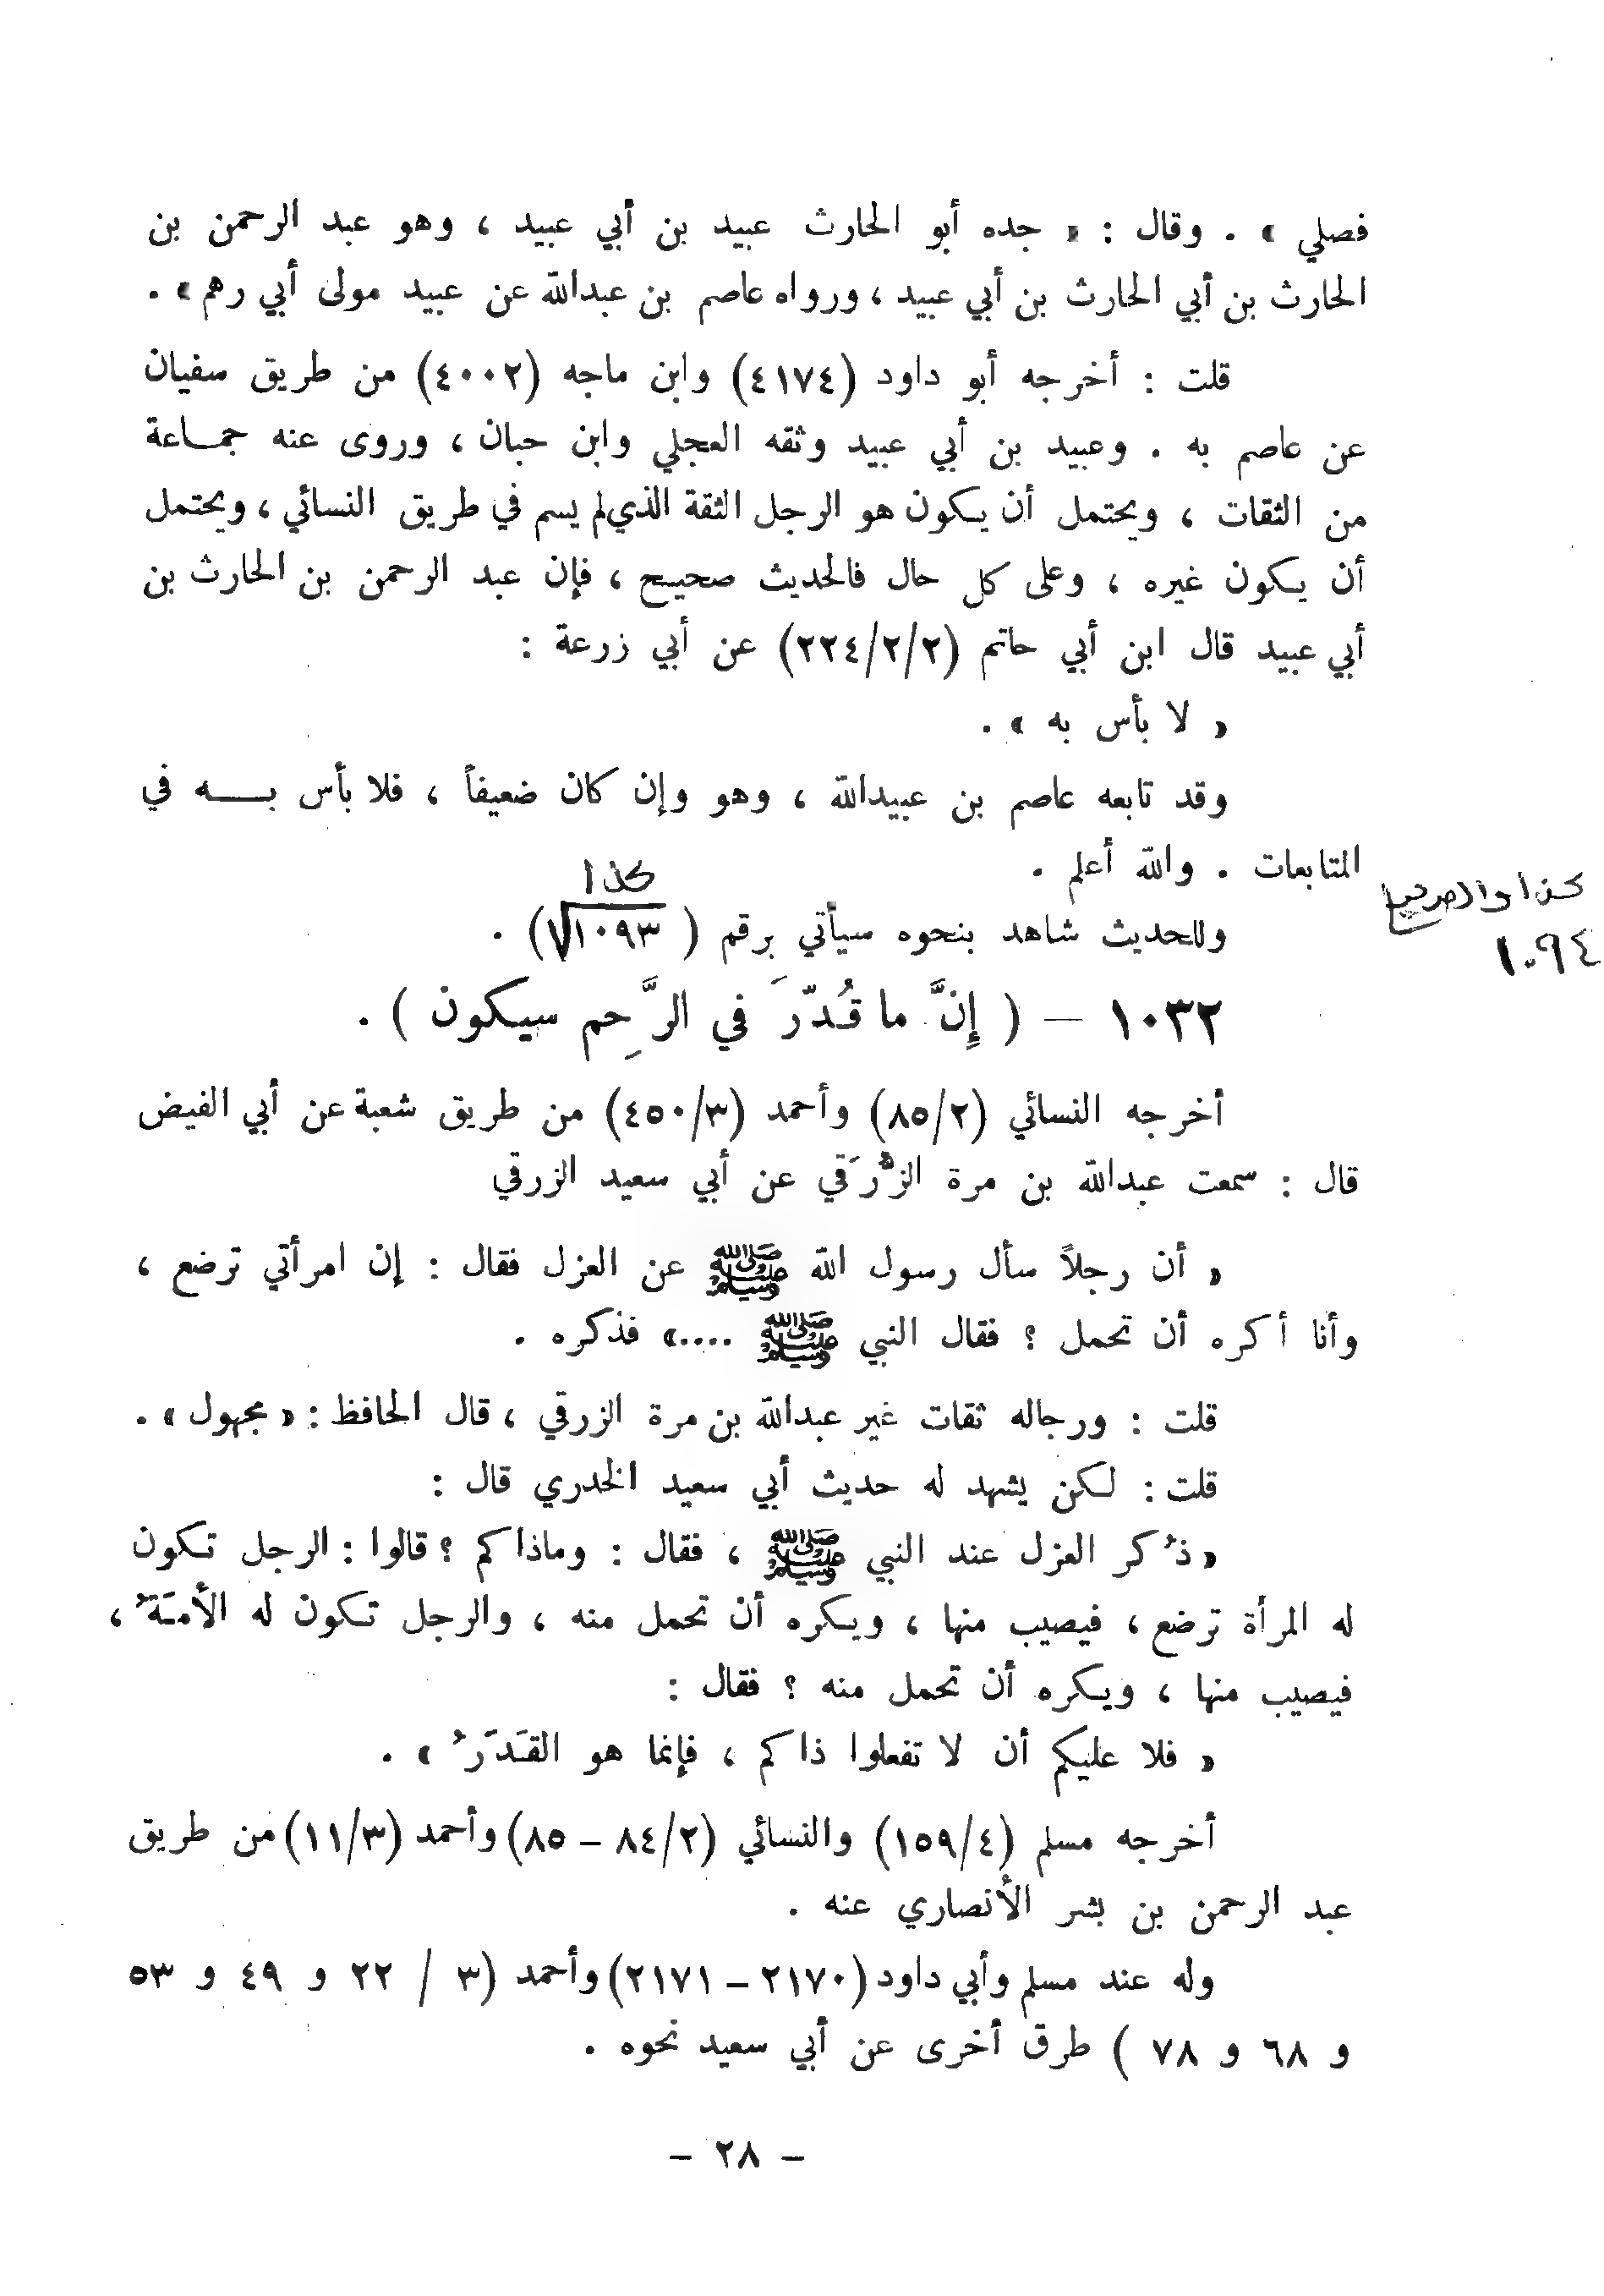 فصلي » . وقال : « جده أبو الحارث عبيد بن أبي عبيد ، وهو عبد الرحمن بن
الحارث بن أبي الحارث بن أبي عبيد ، ورواه عاصم بن عبدالله عن عبيد مولى أبي رهم » .
قلت : أخرجه أبو داود (٤١٧٤) وابن ماجه (٤٠٠٢) من طريق سفيان
عن عاصم به . وعبيد بن أبي عبيد وثقه العجلي وابن حبان ، وروى عنه جماعة
من الثقات ، ويحتمل أن يكون هو الرجل الثقة الذي لم يسم في طريق النسائي ، ويحتمل
أن يكون غيره ، وعلى كل حال فالحديث صحيح ، فإن عبد الرحمن بن الحارث بن
أبي عبيد قال ابن أبي حاتم (٢٢٤/٢/٢) عن أبي زرعة :
« لا بأس به » .
وقد تابعه عاصم بن عبيدالله ، وهو وإن كان ضعيفاً ، فلا بأس بـــه في
المتابعات . والله أعلم .
كذا
وللحديث شاهد بنحوه سيأتي برقم ( ١٠٩٣١) .
كذا والصواب
١٠٩٤
١٠٣٢ – ( إِنَّ ما قُدّرَ في الرَّحِم سيكون ) .
أخرجه النسائي (٨٥/٢) وأحمد (٤٥٠/٣) من طريق شعبة عن أبي الفيض
قال : سمعت عبدالله بن مرة الزُّرَقي عن أبي سعيد الزرقي
« أن رجلاً سأل رسول الله ﷺ عن العزل فقال : إن امرأتي ترضع ،
وأنا أكره أن تحمل ؟ فقال النبي ﷺ ....» فذكره .
قلت : ورجاله ثقات غير عبدالله بن مرة الزرقي ، قال الحافظ : « مجهول » .
قلت : لكن يشهد له حديث أبي سعيد الخدري قال :
« ذُكر العزل عند النبي ﷺ ، فقال : وماذاكم ؟ قالوا : الرجل تكون
له المرأة ترضع ، فيصيب منها ، ويكره أن تحمل منه ، والرجل تكون له الأمَةُ ،
فيصيب منها ، ويكره أن تحمل منه ؟ فقال :
« فلا عليكم أن لا تفعلوا ذاكم ، فإنما هو القَدَرُ » .
أخرجه مسلم (١٥٩/٤) والنسائي (٨٤/٢ – ٨٥) وأحمد (١١/٣) من طريق
عبد الرحمن بن بشر الأنصاري عنه .
وله عند مسلم وأبي داود (٢١٧٠ – ٢١٧١) وأحمد (٣ / ٢٢ و ٤٩ و ٥٣
و ٦٨ و ٧٨ ) طرق أخرى عن أبي سعيد نحوه .
– ٢٨ –